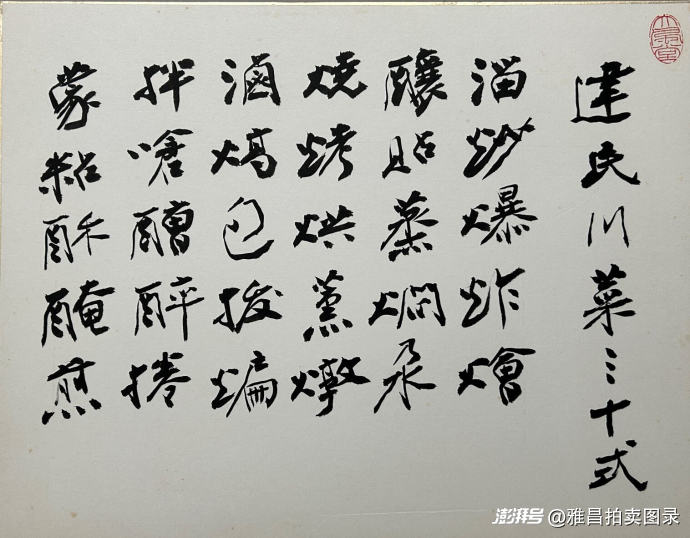 建民川菜三十式
溜炒爆炸燴
釀貼蒸燜汆
燒烤烘薰燉
滷熇包拔煸
拌嗆醩醉捲
蒙粘酥醃煎
澎湃号@雅昌拍卖图录